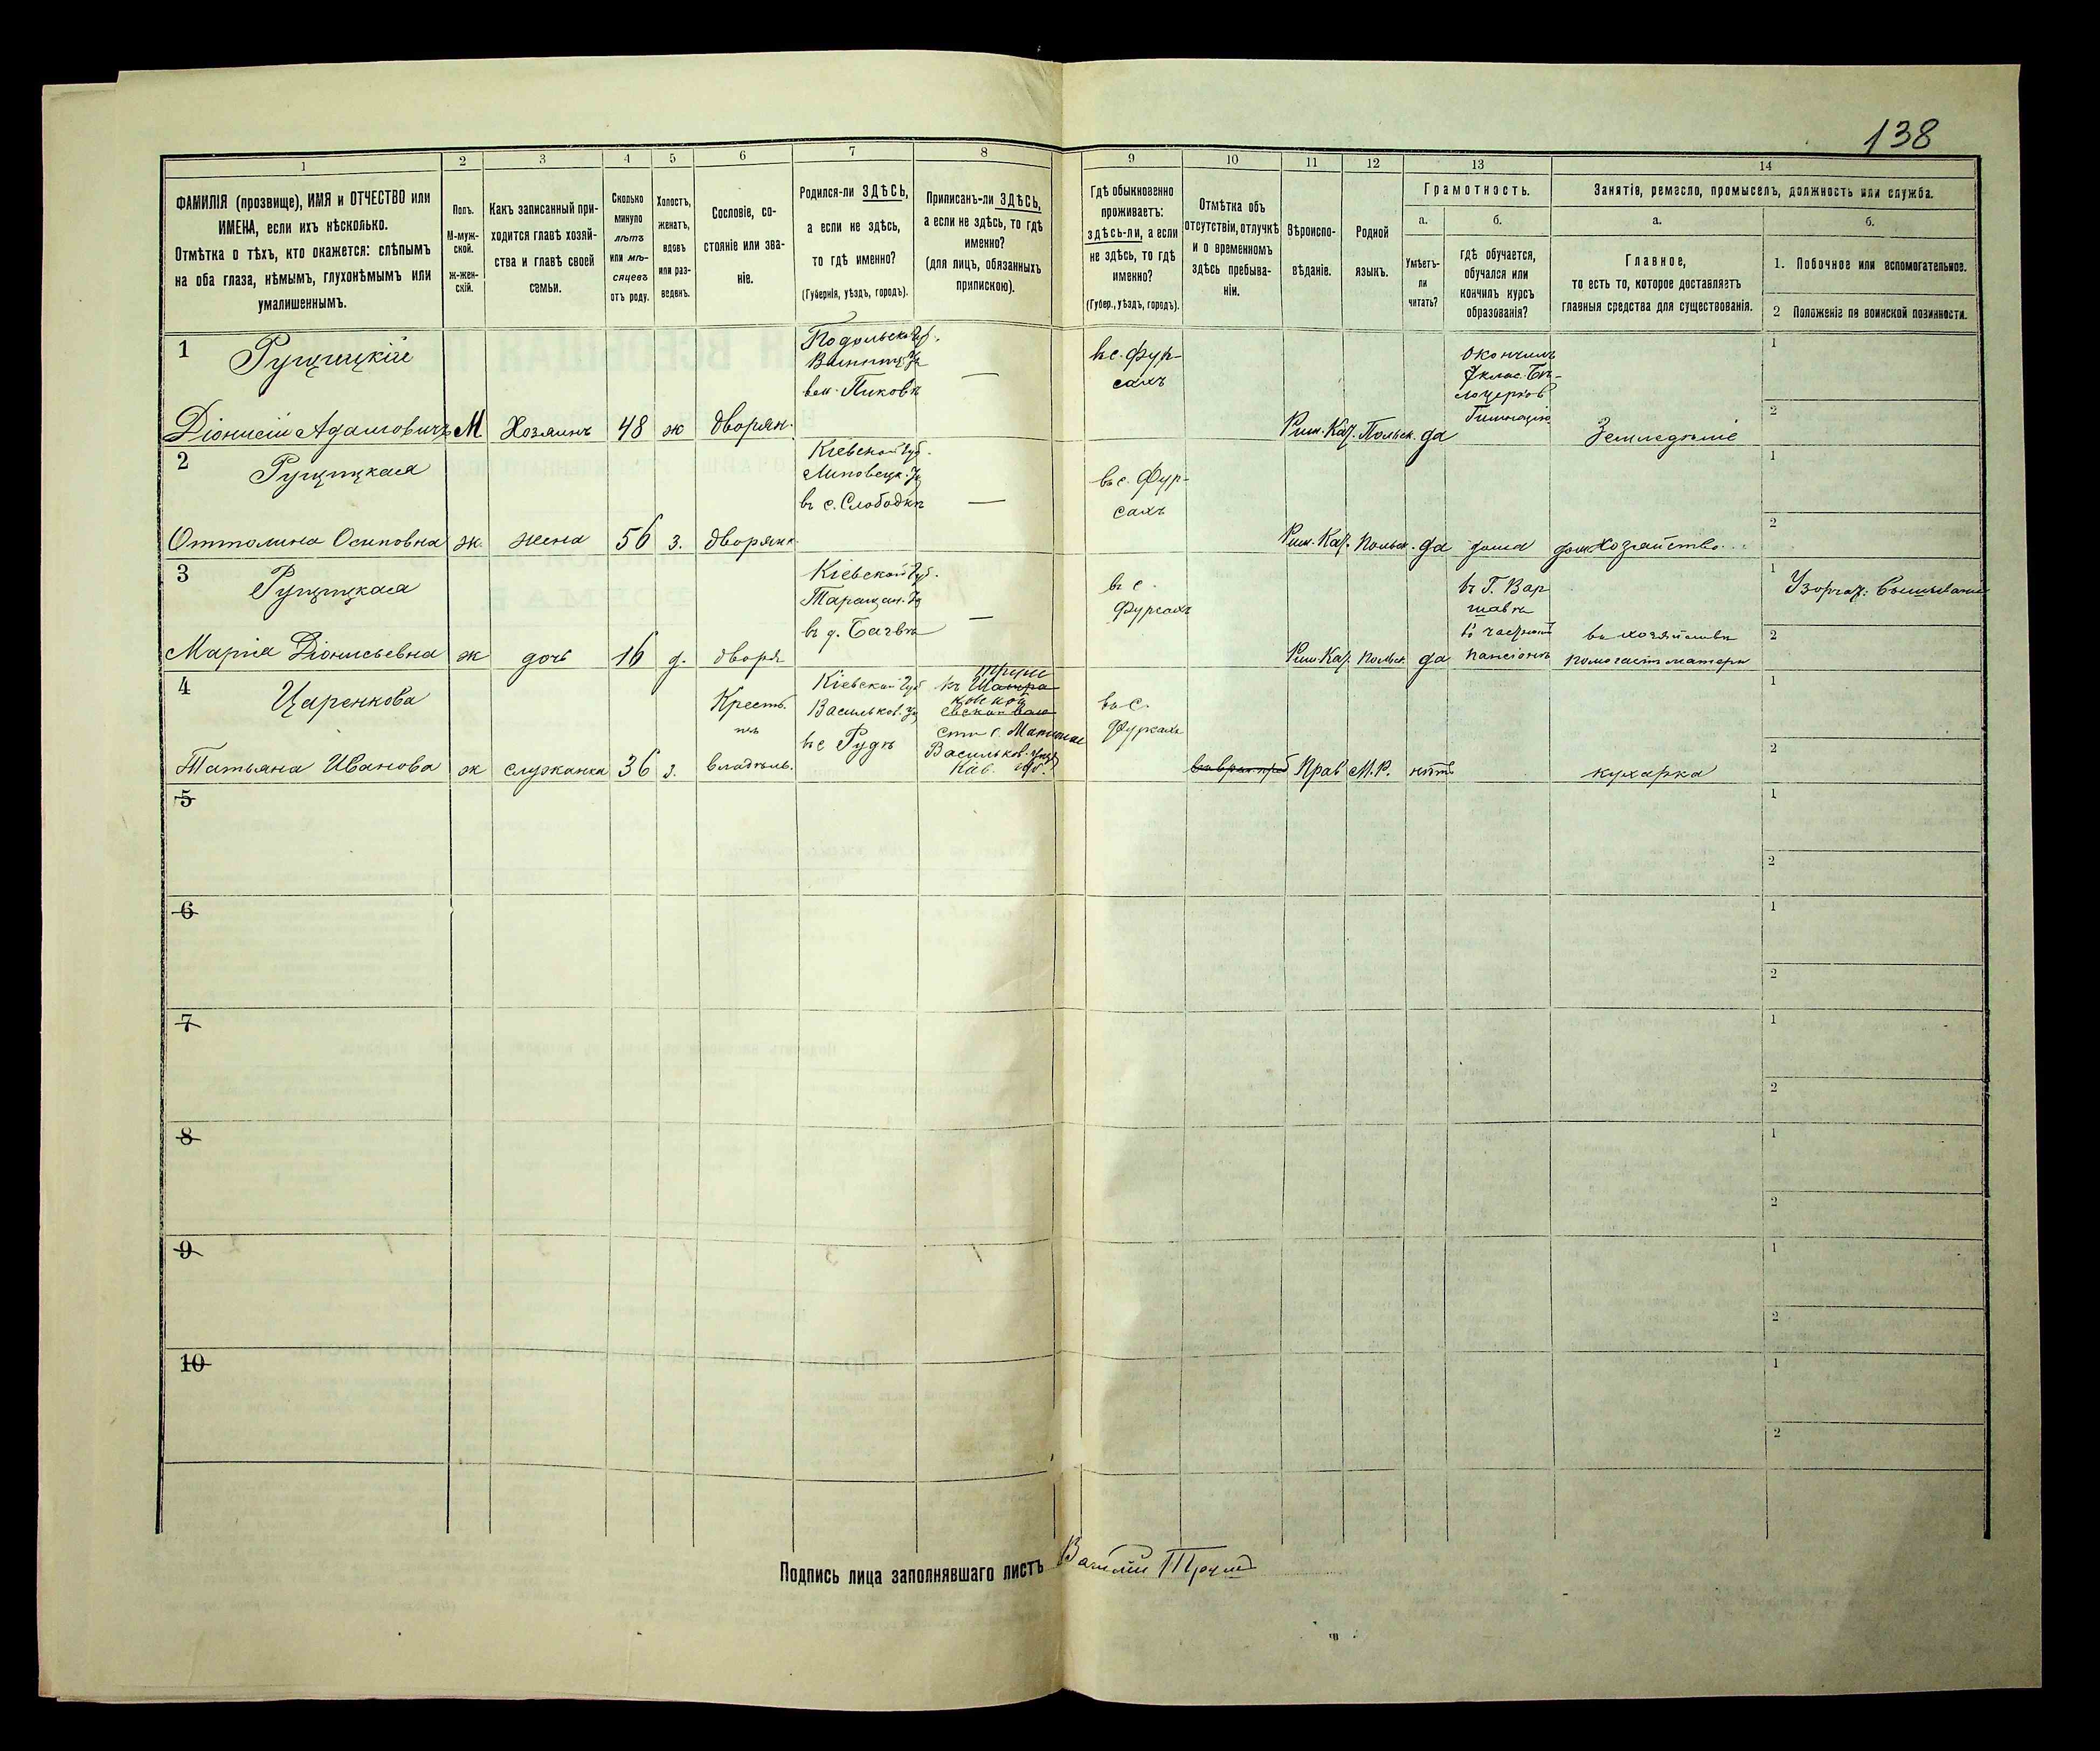 138
1 2 3 4 5 6 7 8 9 10 11 12 13 14
ФАМИЛІЯ (прозвище), ИМЯ и ОТЧЕСТВО или
ИМЕНА, если ихъ нѣсколько.
Отмѣтка о тѣхъ, кто окажется: слѣпымъ
на оба глаза, нѣмымъ, глухонѣмымъ или
умалишеннымъ.
Полъ.
М-муж-
ской.
ж-жен-
скій.
Какъ записанный при-
ходится главѣ хозяй-
ства и главѣ своей
семьи.
Сколько
минуло
лѣтъ
или мѣ-
сяцевъ
отъ роду.
Холостъ,
женатъ,
вдовъ
или раз-
веденъ.
Сословіе, со-
стояніе или зва-
ніе.
Родился-ли ЗДѢСЬ,
а если не здѣсь,
то гдѣ именно?
(Губернія, уѣздъ, городъ).
Приписанъ-ли ЗДѢСЬ,
а если не здѣсь, то гдѣ
именно?
(для лицъ, обязанныхъ
припискою).
Гдѣ обыкновенно
проживаетъ:
здѣсь-ли, а если
не здѣсь, то гдѣ
именно?
(Губер., уѣздъ, городъ).
Отмѣтка объ
отсутствіи, отлучкѣ
и о временномъ
здѣсь пребыва-
ніи.
Вѣроиспо-
вѣданіе.
Родной
языкъ.
Грамотность.
а.
Умѣетъ-
ли
читать?
б.
гдѣ обучается,
обучался или
кончилъ курсъ
образованія?
Занятіе, ремесло, промыселъ, должность или служба.
а.
Главное,
то есть то, которое доставляетъ
главныя средства для существованія.
б.
1. Побочное или вспомогательное.
2 Положеніе по воинской повинности.
1
Рущицкій
Діонисій Адамовичъ
М
Хозяинъ
48
ж
дворян.
Подольской Губ.
Винниц. У
въ м. Пиковѣ
—
въ с. Фур-
сахъ
Рим. Кат.
Польск.
да
окончилъ
7 клас. Бѣ-
лоцерков
Гимназію
Земледѣліе
1
2
2
Рущицкая
Оттолина Осиповна
ж.
жена
56
з.
дворянк.
Кіевской Губ.
Липовецк. У
въ с. Слободкѣ
—
въ с. Фур-
сахъ
Рим. Кат.
Польск.
да
дома
дом. Хозяйство
1
2
3
Рущицкая
Марія Діонисьевна
ж
дочь
16
д.
дворя
Кіевской Губ.
Таращан. У
въ д.
—
въ с.
Фурсахъ
Рим. Кат.
Польск.
да
въ Г. Вар
шавѣ
въ частном
пансіонѣ
въ хозяйствѣ
помогаетъ матери
1
2
4
Царенкова
Татьяна Иванова
ж
служанка
36
з.
Крестья
изъ
владѣль.
Кіевской Губ
Васильков. У
въ с Рудѣ
Васильков. уѣзд
Кіев. Губ.
въ с.
Фурсахъ
Прав
М. Р.
нѣтъ
кухарка
1
2
5
1
2
6
1
2
7
1
2
8
1
2
9
1
2
10
1
2
Подпись лица заполнявшаго листъ